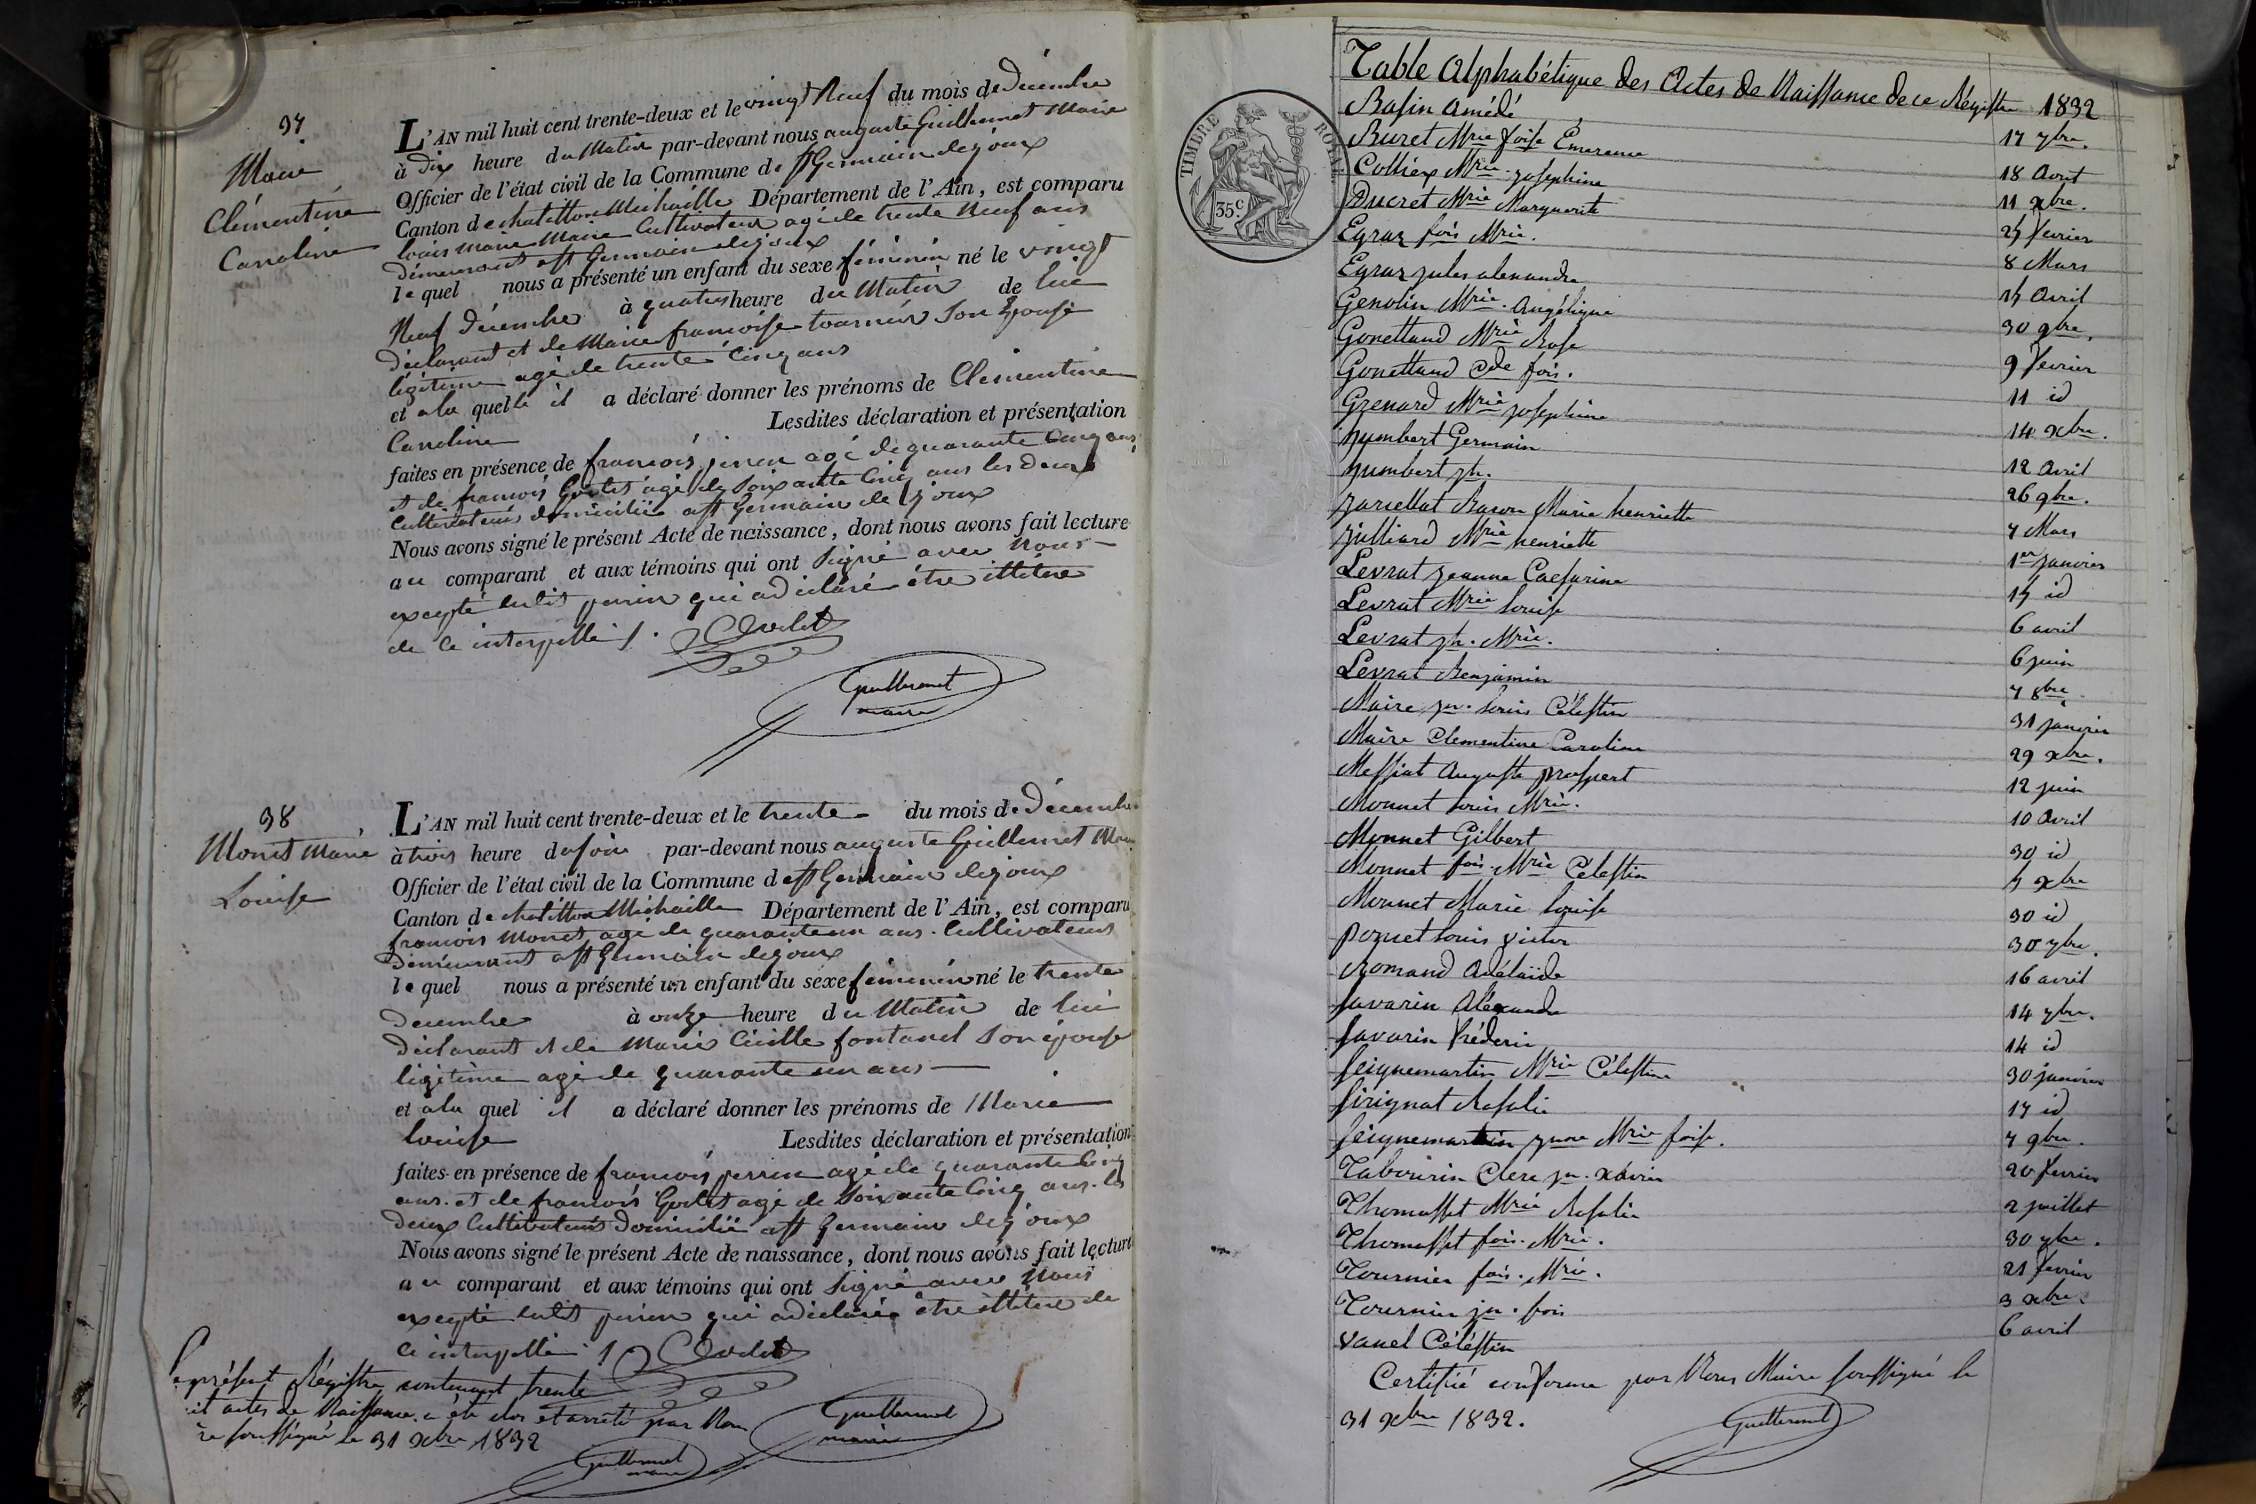 37
Maire
Clémentine
Caroline
L'AN mil huit cent trente-deux et le vingt Neuf du mois de Décembre
à dix heure du Matin par-devant nous auguste Guillermet Maire
Officier de l'état civil de la Commune de st Germain dejoux
Canton de chatillon Michaille Département de l'Ain, est comparu
louis marie Maire Cultivateur agé de trente Neuf ans
démeurant a st Germain dejoux
lequel nous a présenté un enfant du sexe féminin né le vingt
Neuf décembre à quatre heure du Matin de lui
déclarant et de Marie francoise tournier Son épouse
légitime agé de trente Cinq ans
et a la quelle il a déclaré donner les prénoms de Clémentine
Caroline Lesdites déclaration et présentation
faites en présence de francois perrin agé de quarante Cinq ans
et de francois Godet agé de Soixante Cinq ans les deux
Cultivateurs domicilié a st Germain de joux
Nous avons signé le présent Acte de naissance, dont nous avons fait lecture
au comparant et aux témoins qui ont Signé avec Nous
excepté ledit perrin qui a déclaré être illitéré
de ce interpellé /.
Guillermet
maire
38
Monet Marie
Louise
L'AN mil huit cent trente-deux et le trente du mois de Décembre
à trois heure du soir par-devant nous auguste Guillermet Maire
Officier de l'état civil de la Commune de st Germain dejoux
Canton de chatillon Michaille Département de l'Ain, est comparu
francois Monet agé de quarante un ans Cultivateur
démeurant a st Germain dejoux
lequel nous a présenté un enfant du sexe féminin né le trente
decembre à onze heure du Matin de lui
déclarant et de Marie Cécille fontanel Son épouse
légitime agé de quarante un ans
et a la quel il a déclaré donner les prénoms de Marie
louise Lesdites déclaration et présentation
faites en présence de francois perrin agé de quarante Cinq
ans et de francois Godet agé de Soixante Cinq ans les
deux Cultivateurs domicilié a st Germain dejoux
Nous avons signé le présent Acte de naissance, dont nous avons fait lecture
au comparant et aux témoins qui ont Signé avec Nous
excepté ledit perrin qui a déclaré être illitéré de
ce interpellé /.
Guillermet
maire
Le présent Régistre contenant trente
it actes de Naissance a été clos et arrêté par Nous
re soussigné le 31 xbre 1832
Guillermet
maire
TIMBRE ROYAL
35c
Table Alphabétique des Actes de Naissance de ce Régistre 1832
Bafin Amédé 17 7bre.
Buret Mrie foise Émerence 18 Aout
Colliex Mrie josephine 11 xbre.
Ducret Mrie Marguerite 25 fevrier
Egraz fois Mrie. 8 Mars
Egraz jules alexandre 15 Avril
Genolin Mrie Angélique 30 9bre.
Gonettand Mrie Rose 9 fevrier
Gonettand Cde fois. 11 id
Grenard Mrie josephine 14 xbre.
humbert Germain 12 Avril
humbert jh. 26 9bre.
jarcellat Baron Marie henriette 7 Mars
julliard Mrie henriette 1er janvier
Levrat jeanne Caesarine 15 id
Levrat Mrie louise 6 avril
Levrat jh. Mrie. 6 juin
Levrat Benjamin 7 8bre
Maire jn. louis Célestin 31 janvier
Maire Clementine Caroline 29 xbre.
Messiat Auguste prospert 12 juin
Monnet louis Mrie. 10 Avril
Monnet Gilbert 30 id
Monnet fois. Mrie Célestin 5 xbre
Monnet Marie louise 30 id
poncet louis victor 30 7bre.
Romand Adélaïde 16 avril
favarin Alexandre 14 7bre.
favarin fréderic 14 id
seignemartin Mrie Célestine 30 janvier
sirignat Rosalie 17 id
seignemartin jnne Mrie foise. 7 9bre.
Tabourin Clerc jn. Xavier 20 fevrier
Thomasset Mrie Rosalie 2 juillet
Thomasset fois. Mrie. 30 7bre.
Tournier fois. Mrie. 21 fevrier
Tournier jn. fois 3 xbre.
vanel Céléstin 6 avril
Certifié conforme par Nous Maire soussigné le
31 xbre 1832.
Guillermet